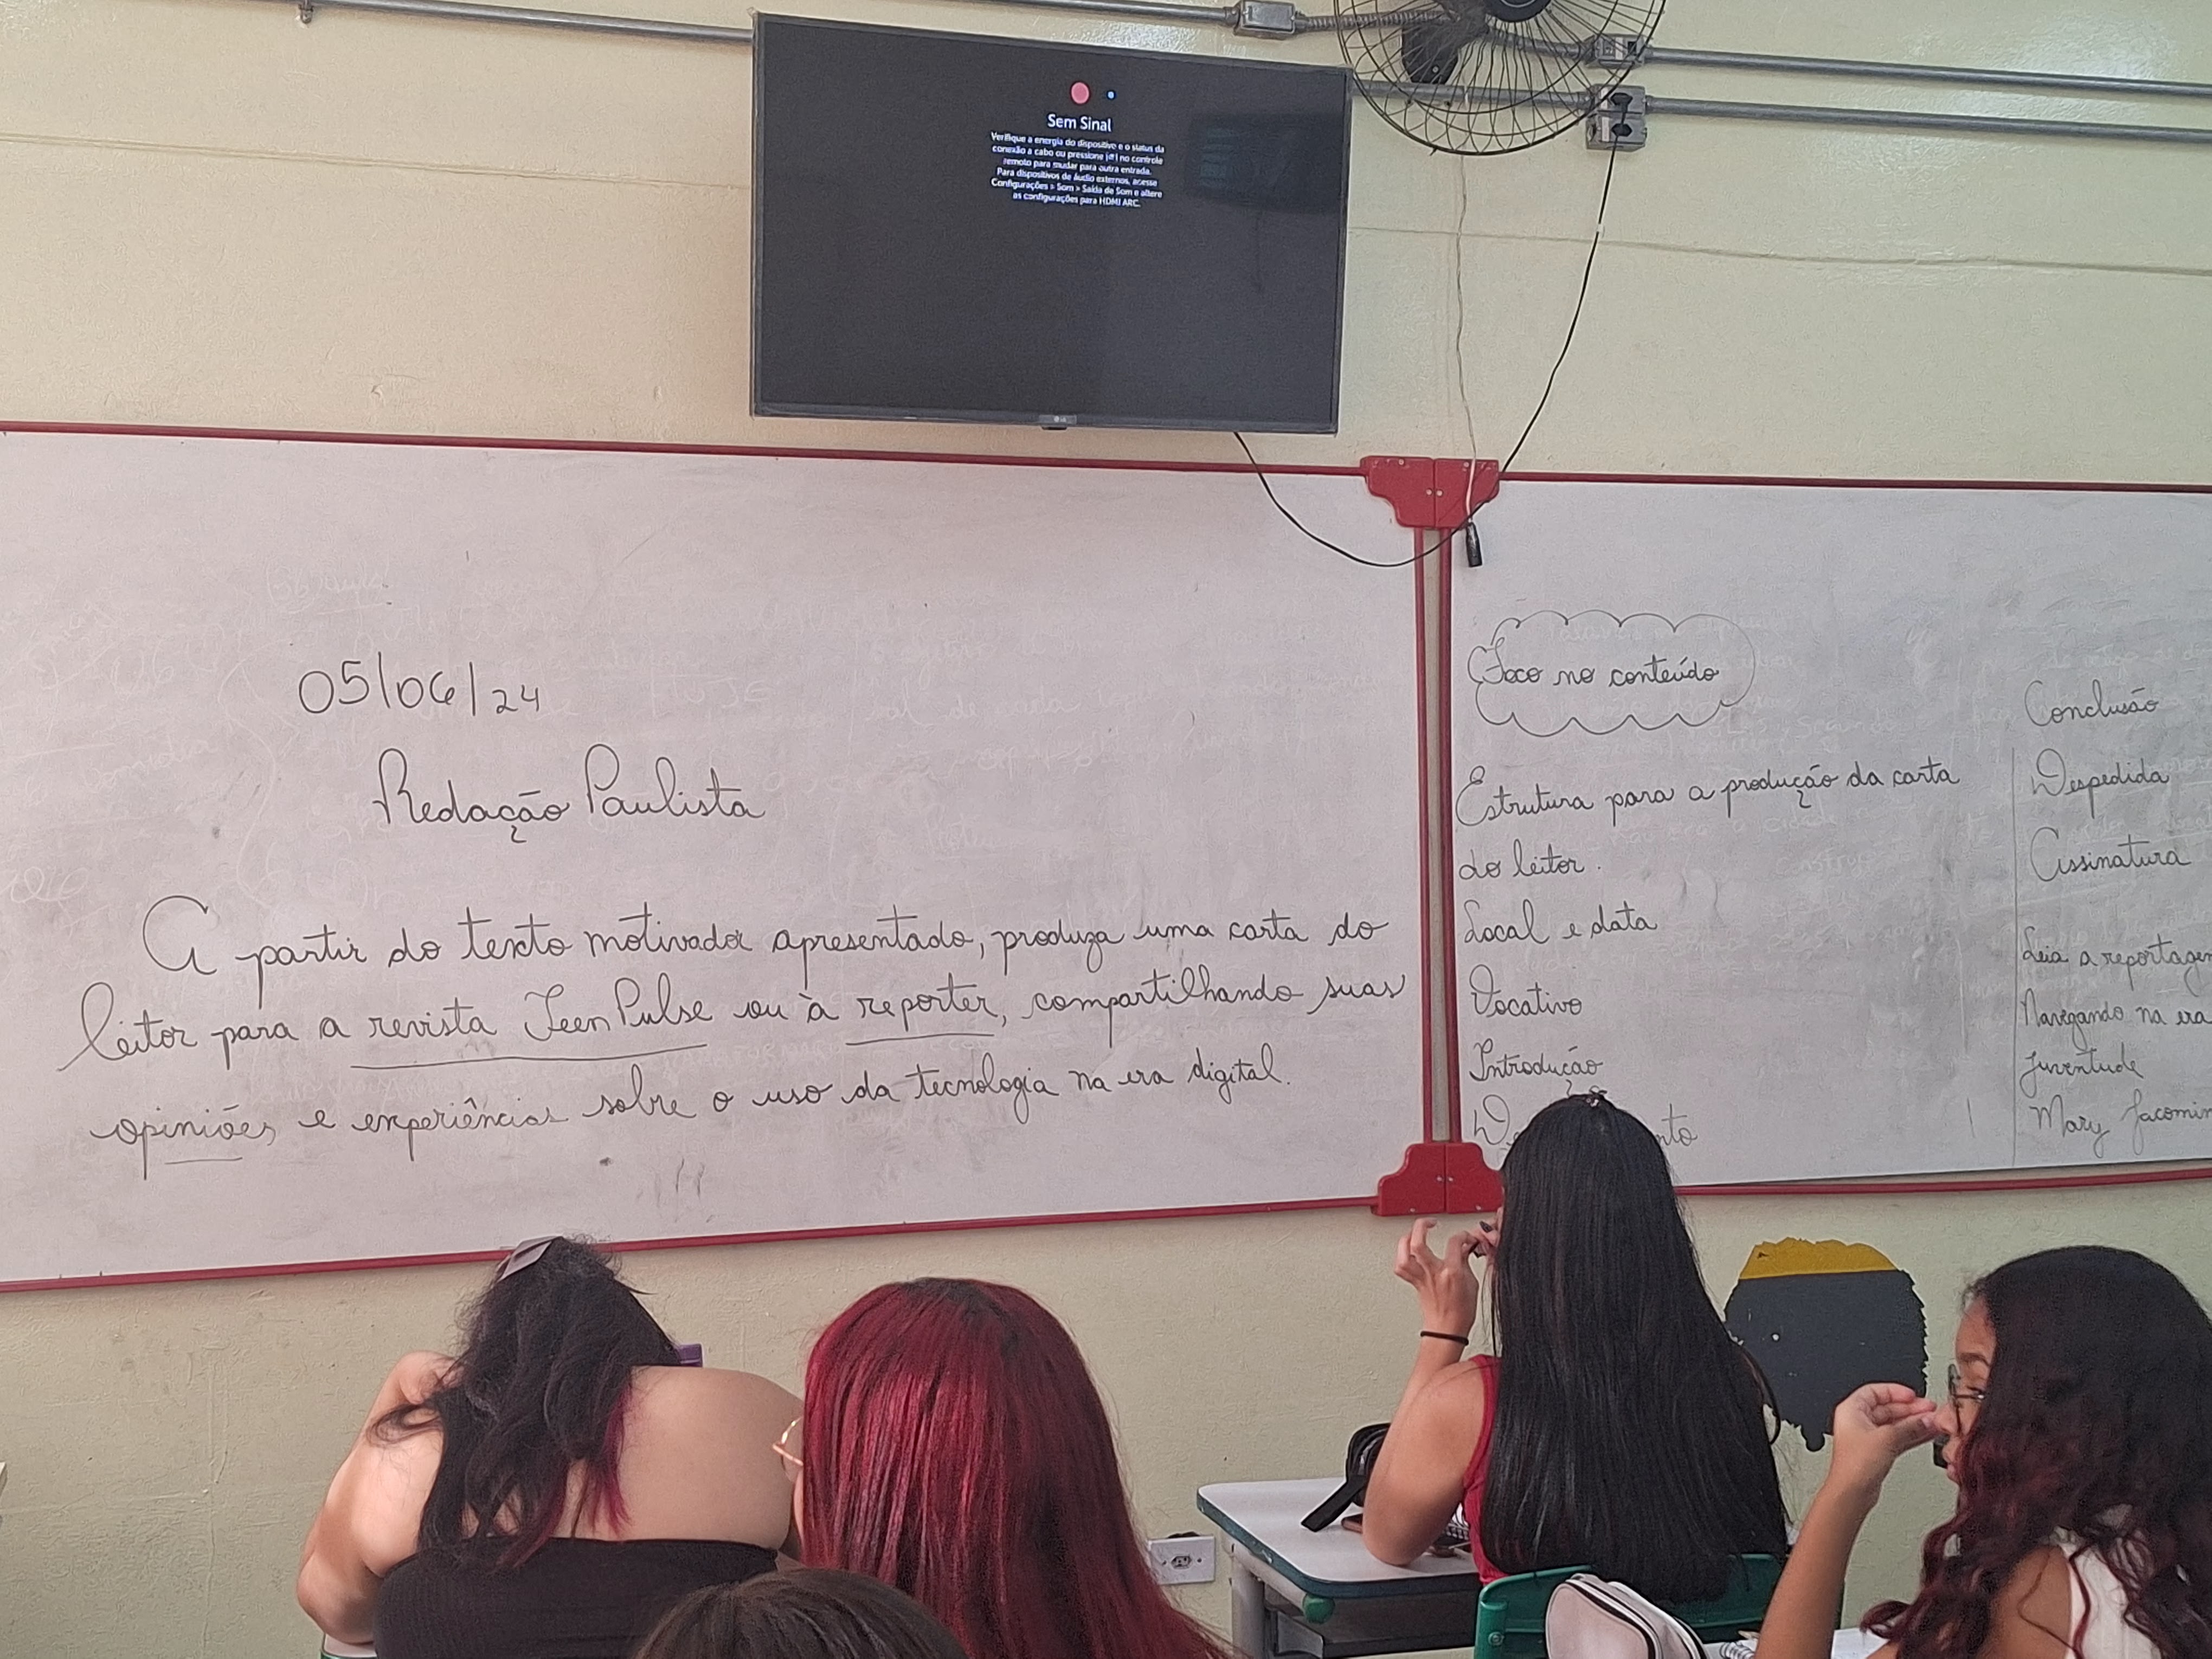 Sem Sinal
Verifique a energia do dispositivo e o status da
conexão a cabo ou pressione [ ] no controle
remoto para mudar para outra entrada.
Para dispositivos de áudio externos, acesse
Configurações > Som > Saída de Som e altere
as configurações para HDMI ARC.
LG
05/06/24
Redação Paulista
A partir do texto motivador apresentado, produza uma carta do
leitor para a revista TeenPulse ou à reporter, compartilhando suas
opiniões e experiências sobre o uso da tecnologia na era digital.
Foco no conteúdo
Estrutura para a produção da carta
do leitor.
Local e data
Vocativo
Introdução
Conclusão
Despedida
Assinatura
Leia a reportagem
Navegando na era
juventude
Mary Jacomin